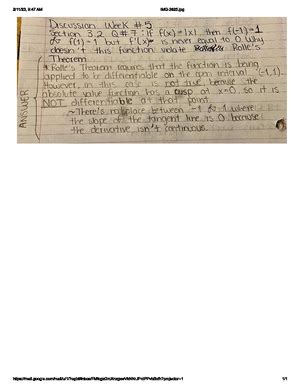 2/11/23, 9:47 AM
IMG-2625.jpg
Discussion Week #5
Section 3.2 Q#7: If f(x)=|x| then f(-1)=1
& f(1)=1 but f'(x) is never equal to 0. Why
doesn't this function violate Rolle's
Theorem
* Rolle's Theorem requires that the function is being
applied to be differentiable on the open interval (-1,1).
However, in this case is not true because the
absolute value function has a cusp at x=0, so it is
NOT differentiable at that point.
~There's no place between -1 & 1 where
the slope of the tangent line is 0 because
the derivative isn't continuous.
ANSWER
1/1